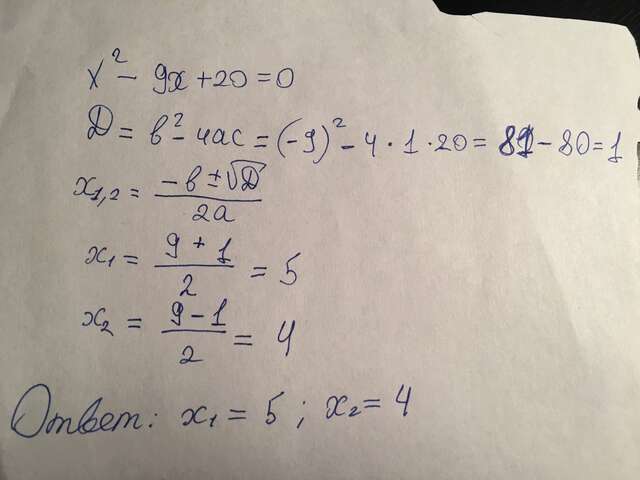 x² - 9x + 20 = 0
D = в² - 4ac = (-9)² - 4 · 1 · 20 = 81 - 80 = 1
x₁,₂ = (-в ± √D) / 2a
x₁ = (9 + 1) / 2 = 5
x₂ = (9 - 1) / 2 = 4
Ответ: x₁ = 5 ; x₂ = 4